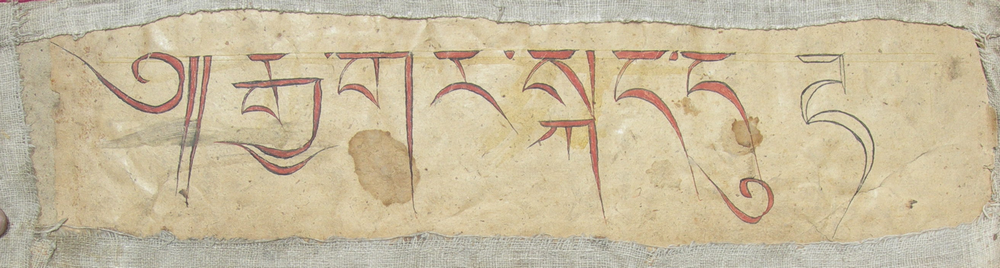 ༄༎རྒྱ་གར་སྐད་དུ ཧ